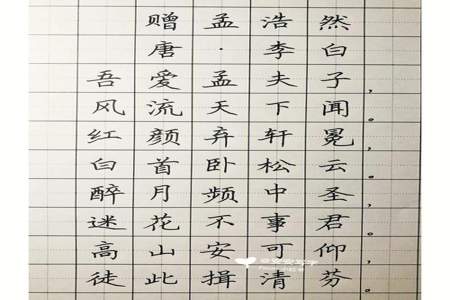 赠孟浩然
唐·李白
吾愛孟夫子，
风流天下闻。
红颜弃轩冕，
白首卧松云。
醉月频中圣，
迷花不事君。
高山安可仰，
徒此揖清芬。